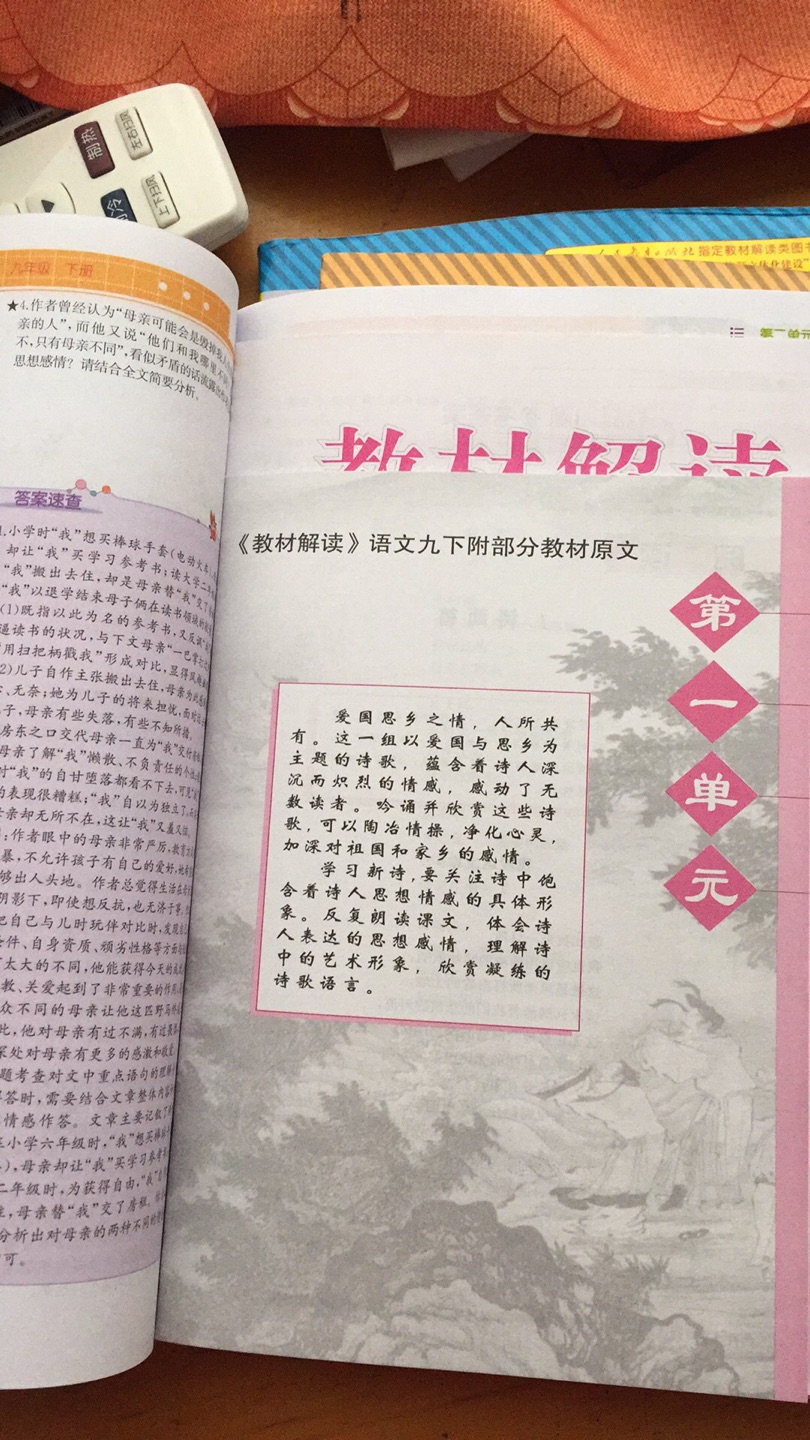 制热
左右扫风
上下扫风
指定教材解读类图书
九年级 下册
★4.作者曾经认为“母亲可能会是毁掉我人
亲的人”,而他又说“他们和我哪里不同
不,只有母亲不同”,看似矛盾的话流露
思想感情?请结合全文简要分析。
答案速查
1.小学时“我”想买棒球手套(电动火车)
却让“我”买学习参考书;读大学二年
“我”搬出去住,却是母亲替“我”交了
“我”以退学结束母子俩在读书领域的
(1)既指以此为名的参考书,又反讽
逼读书的状况,与下文母亲“一巴掌打
用扫把柄戳我”形成对比,显得风趣
2)儿子自作主张搬出去住,母亲为此
、无奈;她为儿子的将来担忧,面对
子,母亲有些失落,有些不知所措。
房东之口交代母亲一直为“我”交付
母亲了解“我”懒散、不负责任的个性
对“我”的自甘堕落都看不下去,可见
的表现很糟糕;“我”自以为独立了,
母亲却无所不在,这让“我”又羞又恼。
:作者眼中的母亲非常严厉,教育方
暴,不允许孩子有自己的爱好,她希望
够出人头地。作者总觉得生活在母
阴影下,即使想反抗,也无济于事。
把自己与儿时玩伴对比时,发现
条件、自身资质、顽劣性格等方面
有太大的不同,他能获得今天的成就
教、关爱起到了非常重要的作用,
众不同的母亲让他这匹野马
此,他对母亲有过不满,有过畏惧
深处对母亲有更多的感激和敬爱
题考查对文中重点语句的理解
解答时,需要结合文章整体内容
情感作答。文章主要记叙了
在小学六年级时,“我”想买棒球
),母亲却让“我”买学习参考书
二年级时,为获得自由,“我”
住,母亲替“我”交了房租。
分析出对母亲的两种不同的
可。
第二单元
教材解读
《教材解读》语文九下附部分教材原文
第一单元
爱国思乡之情,人所共
有。这一组以爱国与思乡为
主题的诗歌,蕴含着诗人深
沉而炽烈的情感,感动了无
数读者。吟诵并欣赏这些诗
歌,可以陶冶情操,净化心灵,
加深对祖国和家乡的感情。
学习新诗,要关注诗中饱
含着诗人思想情感的具体形
象。反复朗读课文,体会诗
人表达的思想感情,理解诗
中的艺术形象,欣赏凝练的
诗歌语言。